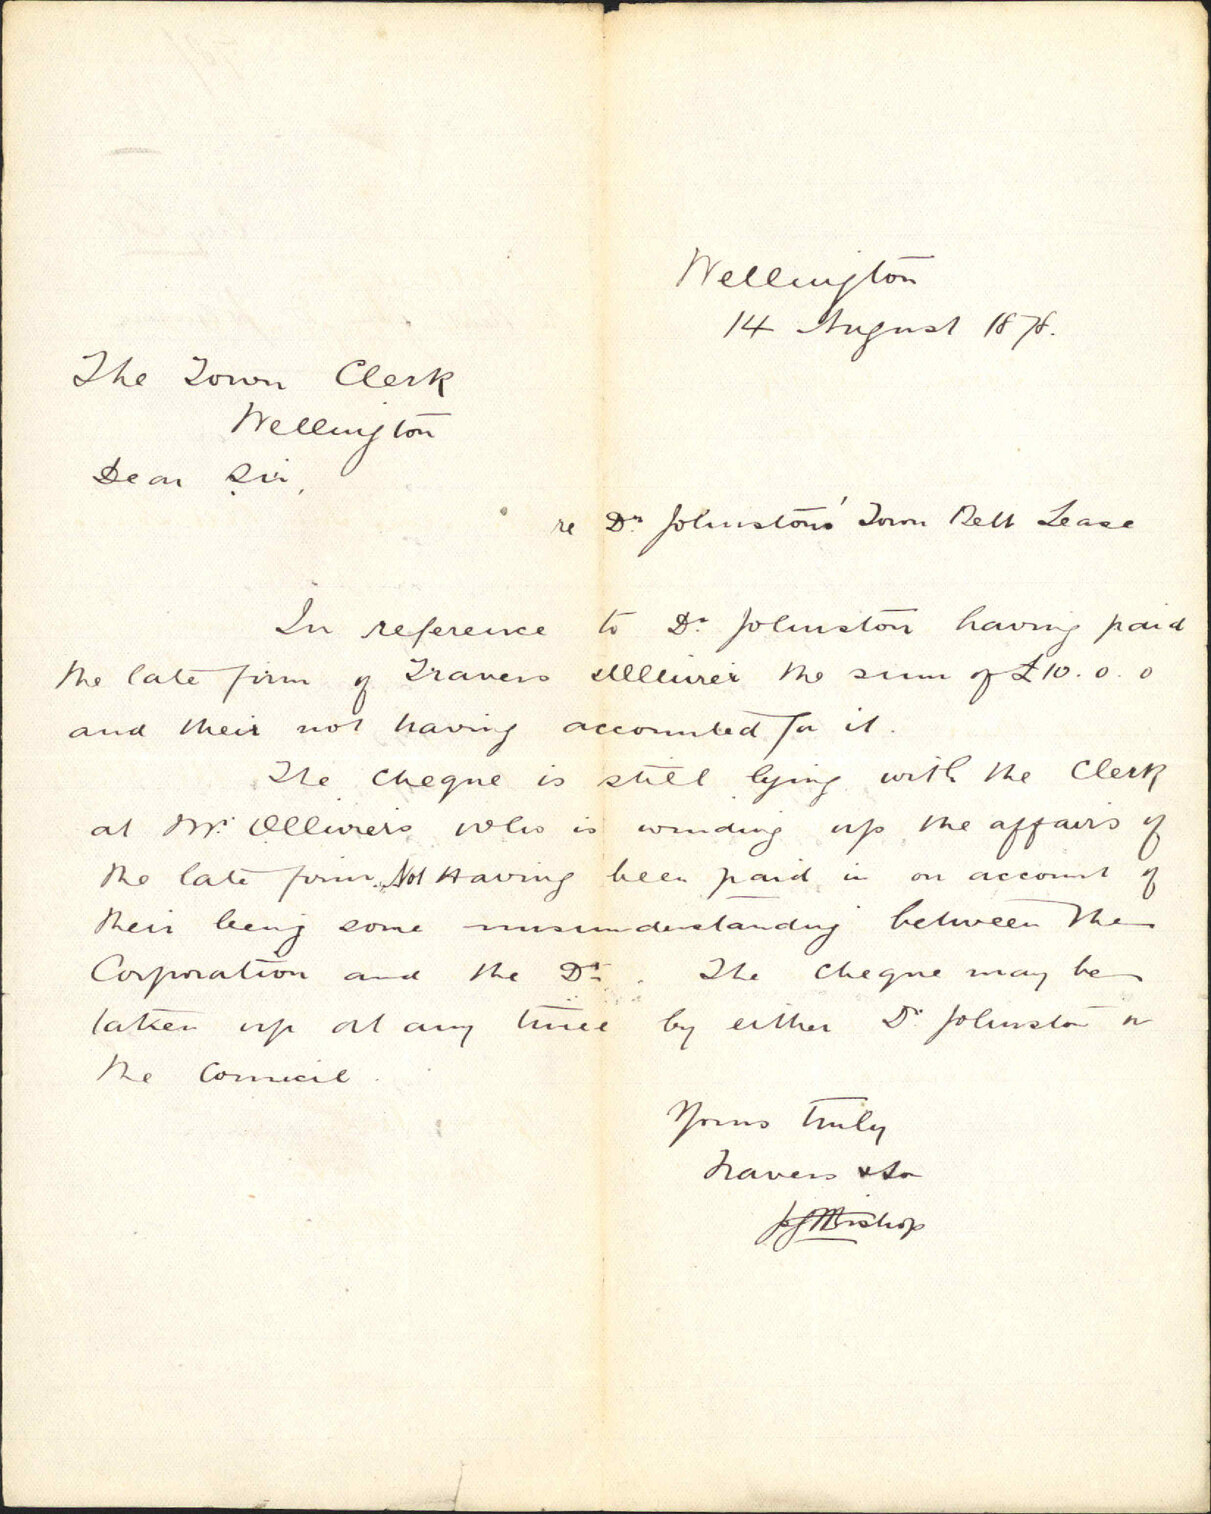 Wellington
14 August 1878.
The Town Clerk
Wellington
Dear Sir,
re Dr. Johnston's Town Belt Lease
In reference to Dr. Johnston having paid
the late firm of Travers Ollivier the sum of £10. 0. 0
and their not having accounted for it.
The cheque is still lying with the Clerk
at Mr. Olliviers who is winding up the affairs of
the late firm. Not Having been paid in on account of
their being some misunderstanding between the
Corporation and the Dr. . The cheque may be
taken up at any time by either Dr. Johnston or
the Council.
Yours truly
Travers & Son
Bishop